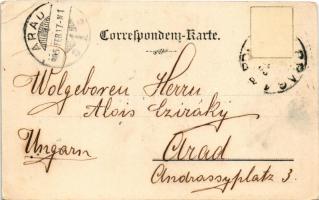 ARAD
Correspondenz-Karte.
Wolgeboren Herrn
Alois Cziráky
Ungarn
Arad
Andrassyplatz 3.